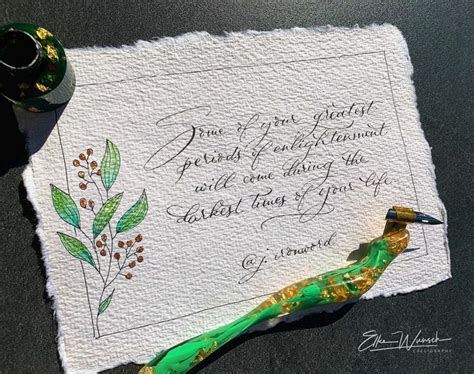 Some of your greatest
periods of enlightenment
will come during the
darkest times of your life
@j.ironword
Elke Wunsch
CALLIGRAPHY